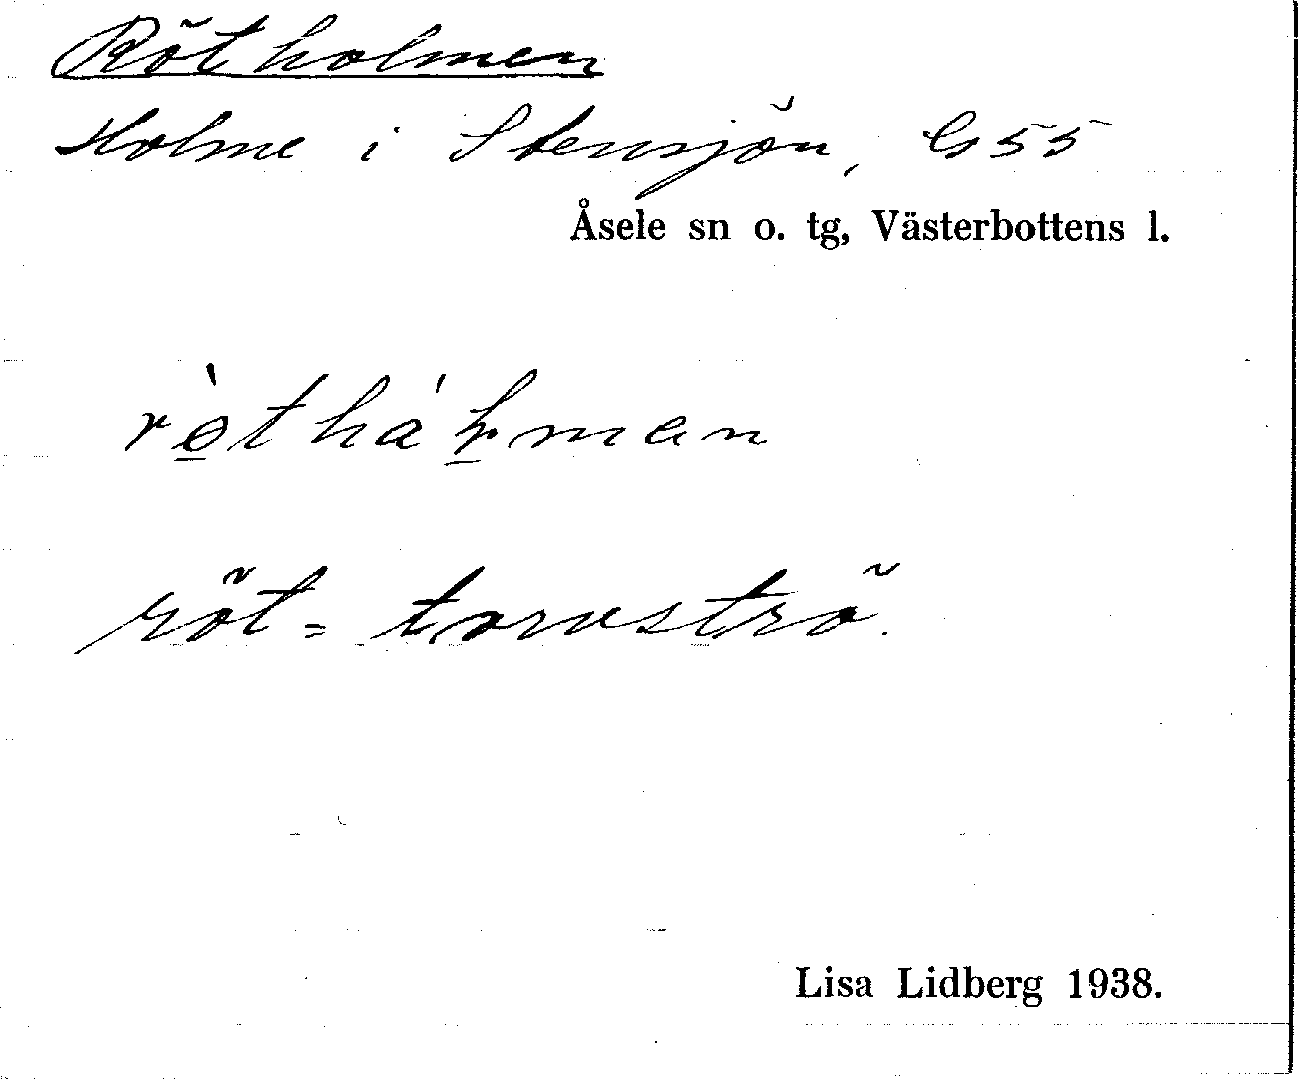 Rötholmen
Holme i Stensjön, G55
Åsele sn o. tg, Västerbottens l.
röt = torvströ.
Lisa Lidberg 1938.